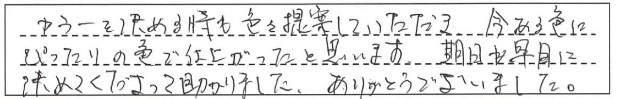 カラーを決める時も色を提案していただき 今ある色に
ぴったりの色で仕上がったと思います。期日も早目に
決めてくださって助かりました。ありがとうございました。